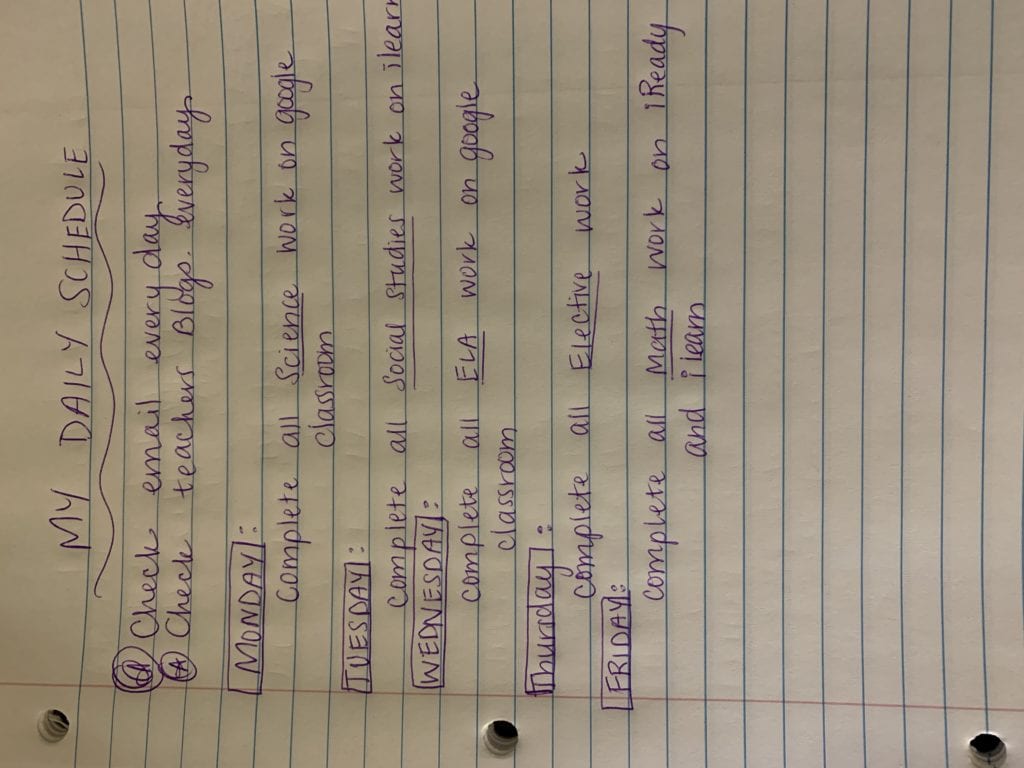 MY DAILY SCHEDULE
Check email every day
(A) Check teachers Blogs. everyday
MONDAY:
Complete all Science work on google
classroom
TUESDAY:
complete all Social Studies work on ilearn
WEDNESDAY:
complete all ELA work on google
classroom
Thursday:
complete all Elective work
FRIDAY:
complete all Math work on iReady
and ilearn